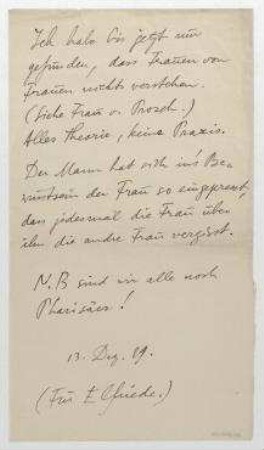 Ich habe bis jetzt nur
gefunden, dass Frauen von
Frauen nichts verstehen.
(Siehe Frau v. Prosch.)
Alles Theorie, keine Praxis.
Der Mann hat sich ins Be-
wusstsein der Frau so eingeprent,
dass jedesmal die Frau über
ihn die andre Frau vergisst.
N.B sind wir alle noch
Pharisäer!
13. Dez. 19.
(Für Elfriede.)